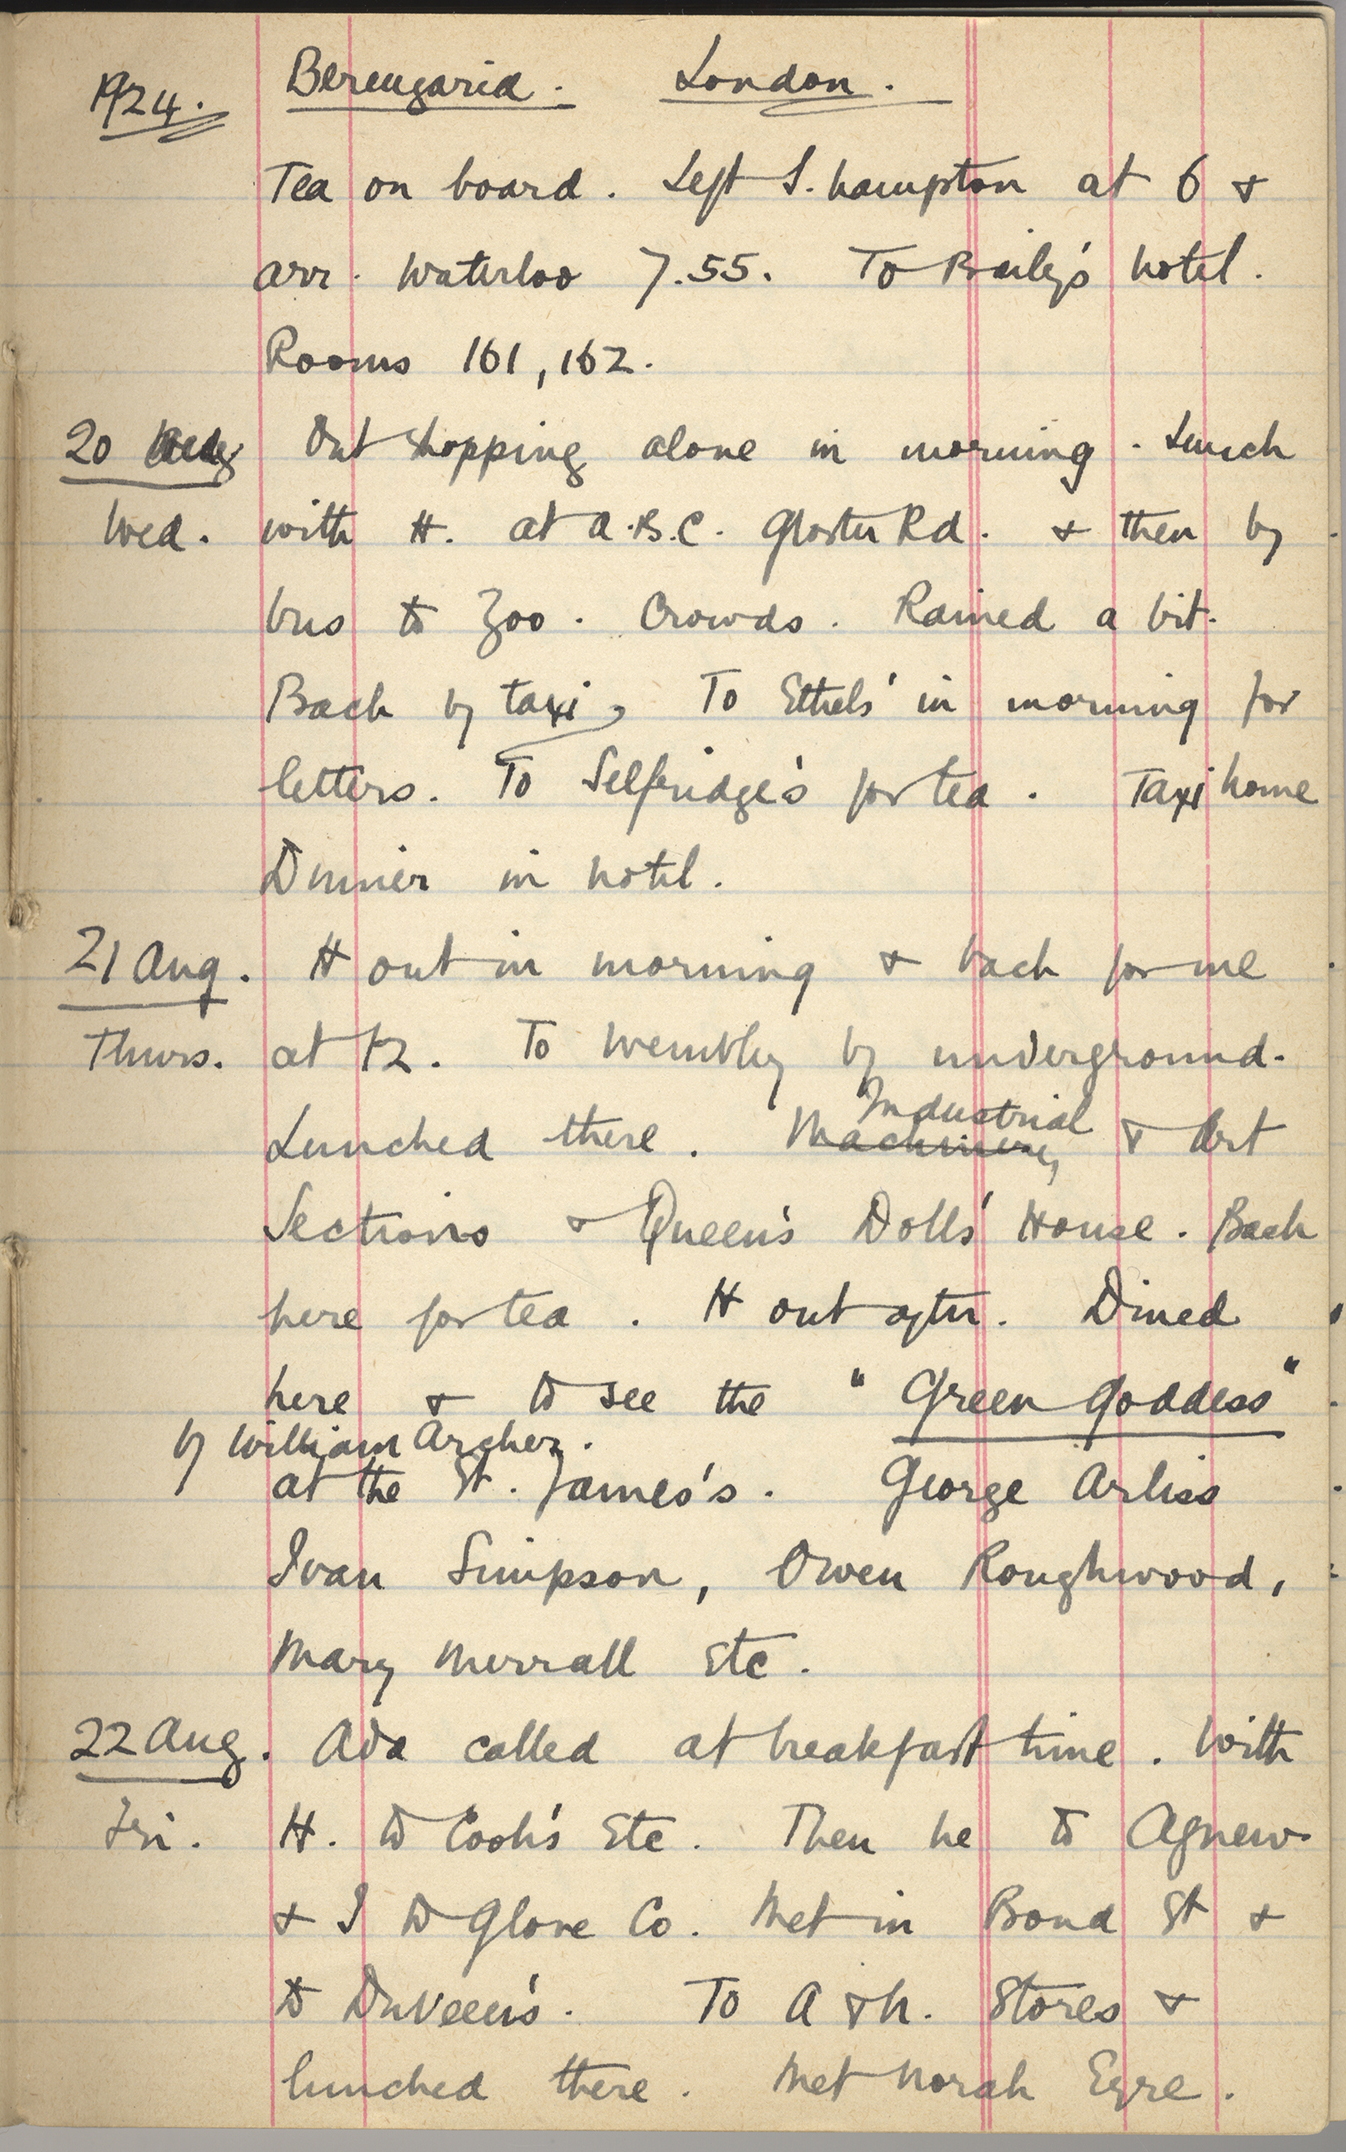 1924. Berengaria. London.
Tea on board. Left S.hampton at 6 &
arr. Waterloo 7.55. To Baily's hotel.
Rooms 161, 162.
20 Aug Out shopping alone in morning. Lunch
Wed. with H. at A.B.C. Gloster Rd. & then by
bus to Zoo. Crowds. Rained a bit.
Back by taxi, To Ethels' in morning for
letters. To Selfridge's for tea. Taxi home
Dinner in hotel.
21 Aug. H out in morning & back for me
Thurs. at 12. To Wembley by underground.
Industrial
Lunched there. Machinery & Art
Sections & Queen's Dolls' House. Back
here for tea. H out after. Dined
here & to see the "Green Goddess"
by William Archer.
at the St. James's. George Arliss
Ivan Simpson, Owen Roughwood,
Mary Merrall Etc.
22 Aug. Ada called at breakfast time. With
Fri. H. to Cook's Etc. Then he to Agnew
& I to Glove Co. Met in Bond St &
to DuVeen's. To A & N. Stores &
lunched there. Met Norah Eyre.